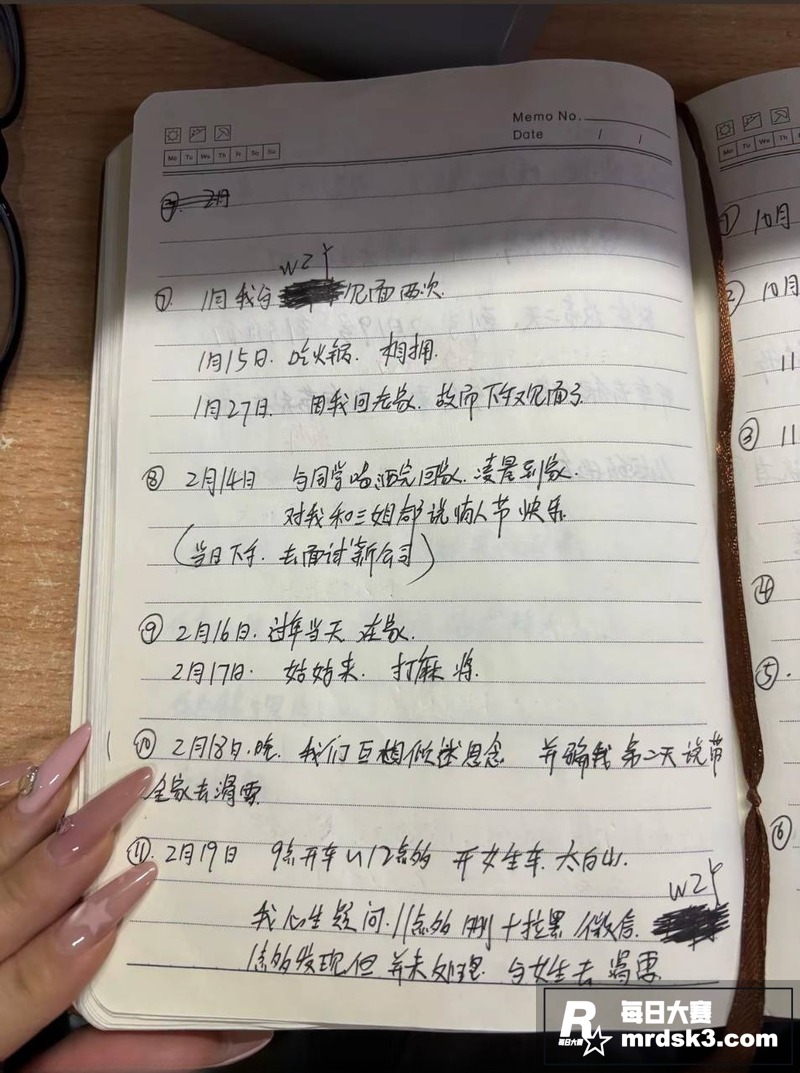 Memo No.
Date / /
Mo Tu We Th Fr Sa Su
2月
wzy
⑦ 1月我与 见面两次.
1月15日. 吃火锅. 相拥.
1月27日. 因我回老家. 故而下午又见面了
⑧ 2月14日 与同学喝酒完回家. 凌晨到家.
对我和三姐都说情人节快乐
(当日下午. 去面试新公司)
⑨ 2月16日. 过年当天 在家.
2月17日. 姑姑来. 打麻将.
⑩ 2月18日.晚. 我们互相倾述思念. 并骗我第二天说带
全家去滑雪
⑪ 2月19日 9点开车 12点多 开女生车. 太白山.
wzy
我心生疑问. 11点多 删+拉黑 微信.
1点多发现但并未处理. 与女生去滑雪
① 10月
② 10月
11
③ 11
④
⑤
⑥
R 每日大赛
每日大赛
mrdsk3.com